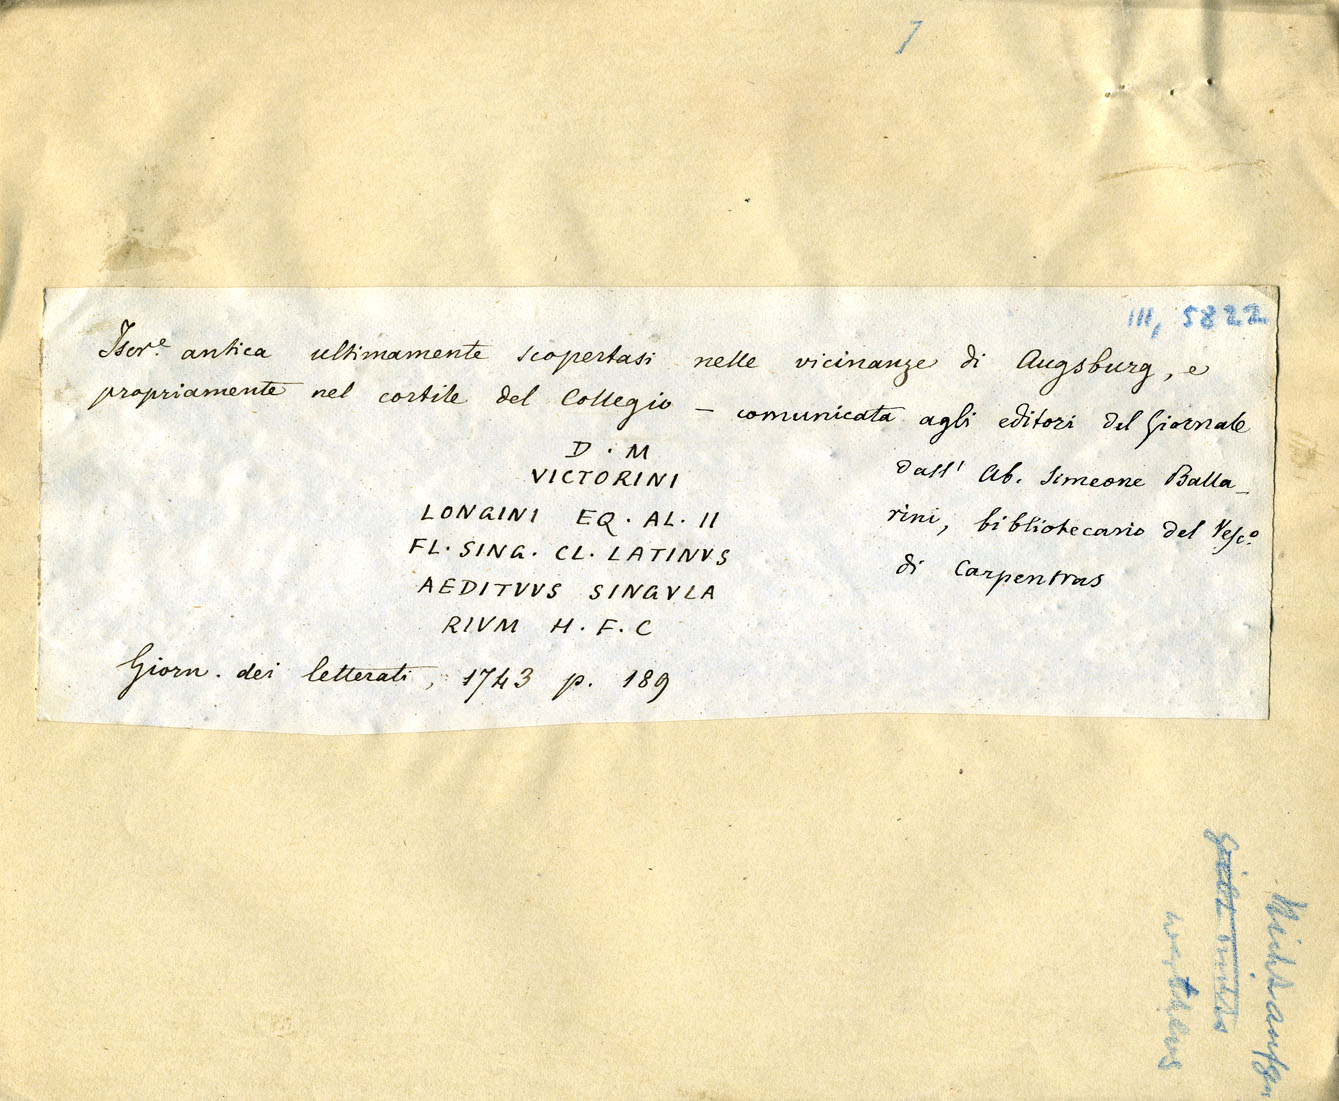 III, 5822
Iscr.e antica ultimamente scopertasi nelle vicinanze di Augsburg, e
propriamente nel cortile del Collegio – comunicata agli editori del Giornale
dall' Ab. Simeone Balla_
rini, bibliotecario del Vesc.o
di Carpentras
D · M
VICTORINI
LONGINI EQ · AL · II
FL · SING · CL · LATINVS
AEDITVVS SINGVLA
RIVM H · F · C
Giorn. dei letterati, 1743 p. 189